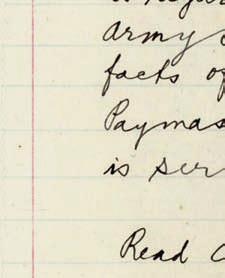 army
facts of
Paymas
is ser
Read